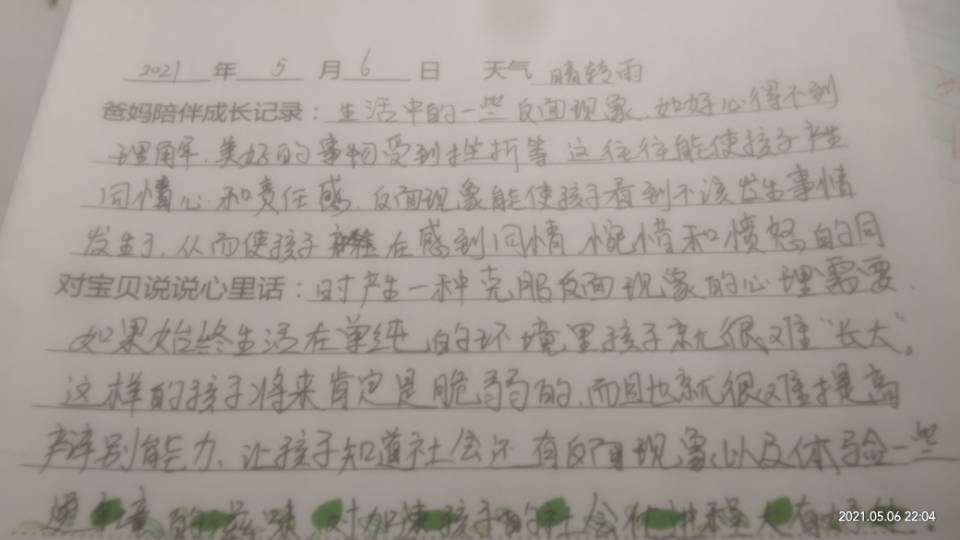 2021 年 5 月 6 日 天气 晴转雨
爸妈陪伴成长记录：生活中的一些反面现象，如好心得不到
理解，美好的事物受到挫折等，这往往能使孩子产生
同情心和责任感，反面现象能使孩子看到不该发生事情
发生了，从而使孩子 在感到同情 惋惜和愤怒的同
对宝贝说说心里话：时产生一种克服反面现象的心理需要．
如果始终生活在单纯的环境里孩子就很难"长大"。
这样的孩子将来肯定是脆弱的，而且也就很难提高
辨别能力，让孩子知道社会还有反面现象，以及体验一些
逆境的滋味，对加速孩子的社会化进程大有好处。
2021.05.06 22:04